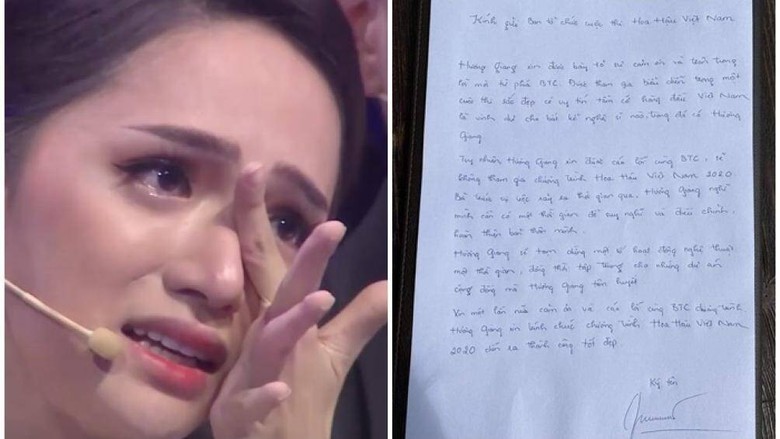 Kính gửi Ban tổ chức cuộc thi Hoa Hậu Việt Nam
Hương Giang xin được bày tỏ sự cảm ơn và trân trọng
lời mời từ phía BTC. Được tham gia biểu diễn trong một
cuộc thi sắc đẹp có uy tín tầm cỡ hàng đầu Việt Nam
là vinh dự cho bất kể nghệ sĩ nào, trong đó có Hương
Giang.
Tuy nhiên Hương Giang xin được cáo lỗi cùng BTC, sẽ
không tham gia chương trình Hoa Hậu Việt Nam 2020
Bởi vừa sự việc xảy ra thời gian qua, Hương Giang nghĩ
mình cần có một thời gian để suy nghĩ và điều chỉnh,
hoàn thiện bản thân mình.
Hương Giang sẽ tạm dừng một số hoạt động nghệ thuật
một thời gian, đồng thời tập trung cho những dự án
cộng đồng mà Hương Giang tâm huyết
Xin một lần nữa cảm ơn và cáo lỗi cùng BTC chương trình
Hương Giang xin kính chúc chương trình Hoa Hậu Việt Nam
2020 diễn ra thành công tốt đẹp.
Ký tên